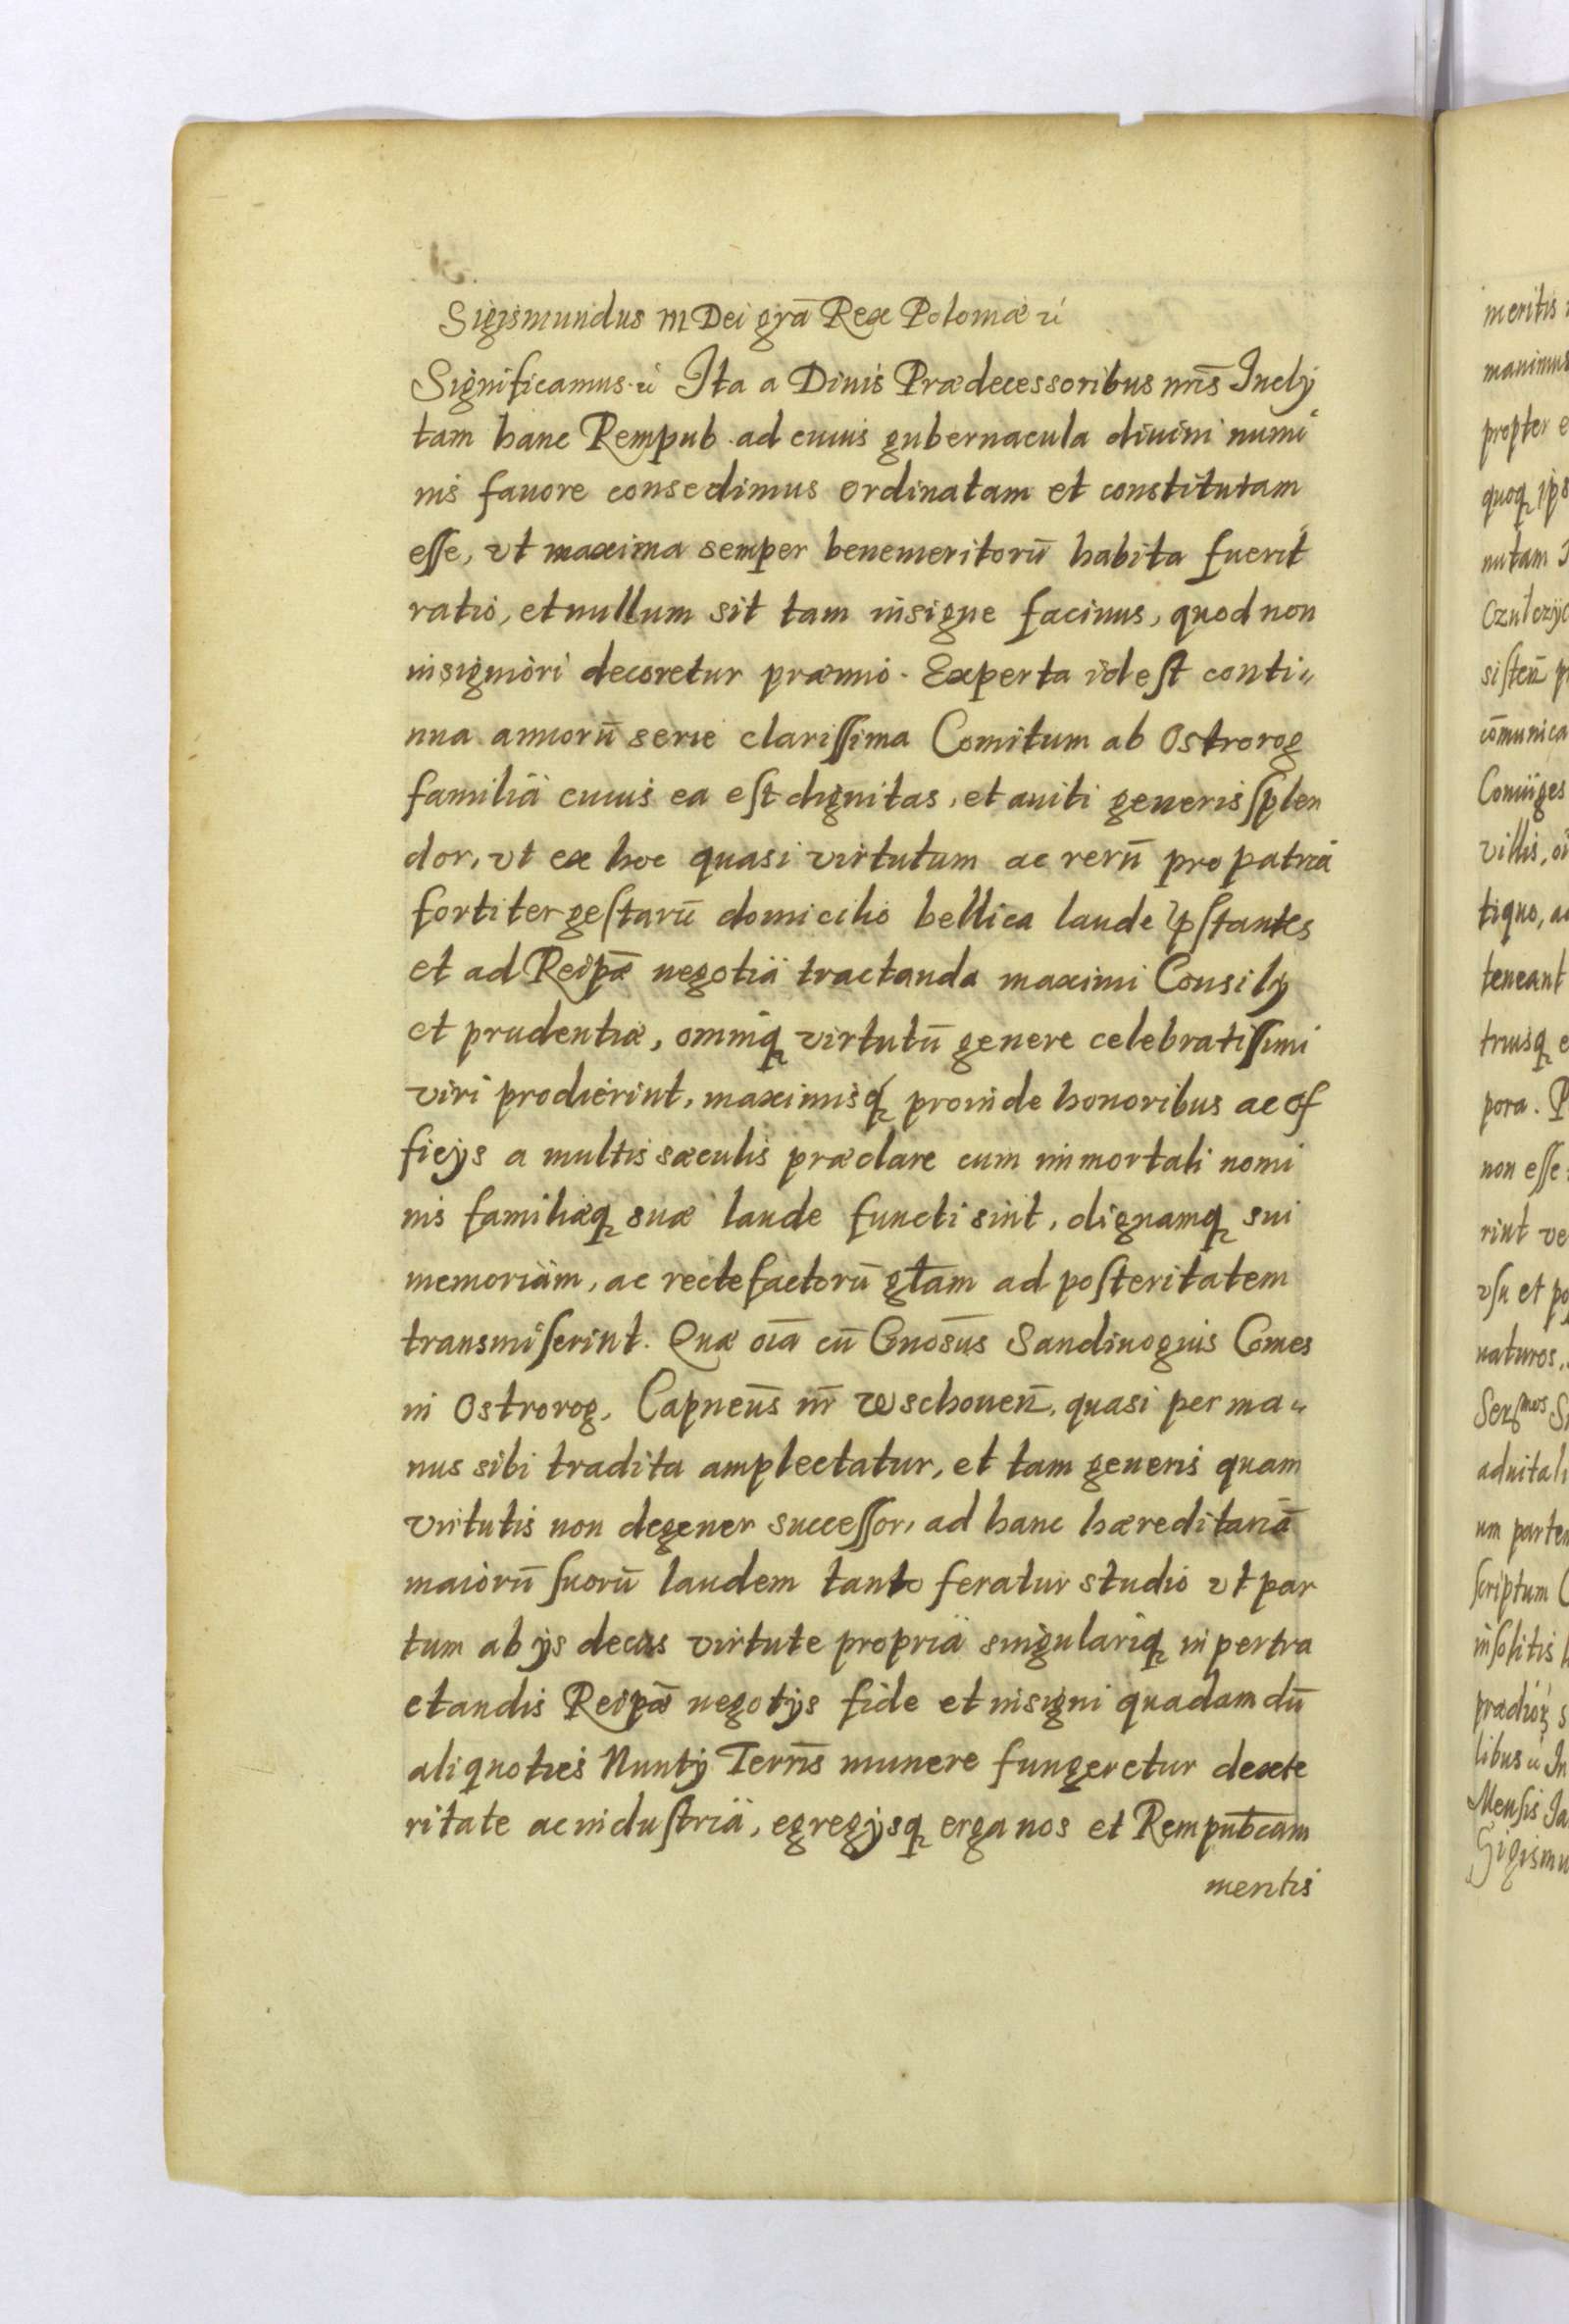 Sigismundus III Dei grā Rex Poloniæ rc̃
Significamus rc̃ Ita a Diuis Prædecessoribus nr̄is Incly
tam hanc Rempub. ad cuius gubernacula diuini numi
nis fauore consedimus ordinatam et constitutam
esse, vt maxima semper benemeritorū habita fuerit
ratio, et nullum sit tam insigne facinus, quod non
insigniori decoretur præmio. Experta id est conti„
nua annorū serie clarissima Comitum ab Ostrorog
familia cuius ea est dignitas, et auiti generis splen
dor, vt ex hoc quasi virtutum ac rerū pro patria
fortiter gestarū domicilio bellica laude p̄stantes
et ad Reipǣ negotia tractanda maximi Consilÿ
et prudentiæ, omniq virtutū genere celebratissimi
viri prodierint, maximisq proinde honoribus ac of
ficÿs a multis sæculis præclare cum immortali nomi
nis familiæq suæ laude functi sint, dignamq sui
memoriam, ac recte factorū gl̄am ad posteritatem
transmiserint. Quæ oīa cū Gnosūs Sandiuogius Comes
in Ostrorog, Capneūs nr̄ Wschoueñ, quasi per ma„
nus sibi tradita amplectatur, et tam generis quam
virtutis non degener successor, ad hanc hæreditariā
maiorū suorū laudem tanto feratur studio vt par
tum ab ÿs decus virtute propria singulariq in pertra
ctandis Reipǣ negotÿs fide et insigni quadam dū
aliquoties Nuntÿ Terrn̄s munere fungeretur dexte
ritate ac industria, egregÿsq erga nos et Rempub̄cam
meritis
meritis
manimus
propter e
quoq ips
nutam
Czulczÿc
sisteñ p
cōmunica
Coniūges
villis, o
tiquo, a
teneant
triusq e
pora. P
non esse
rint ve
vsu et po
naturos,
Sermos S
aduitali
um partem
scriptum C
insolitis
prædior s
libus In
Mensis Ja
Sigismu